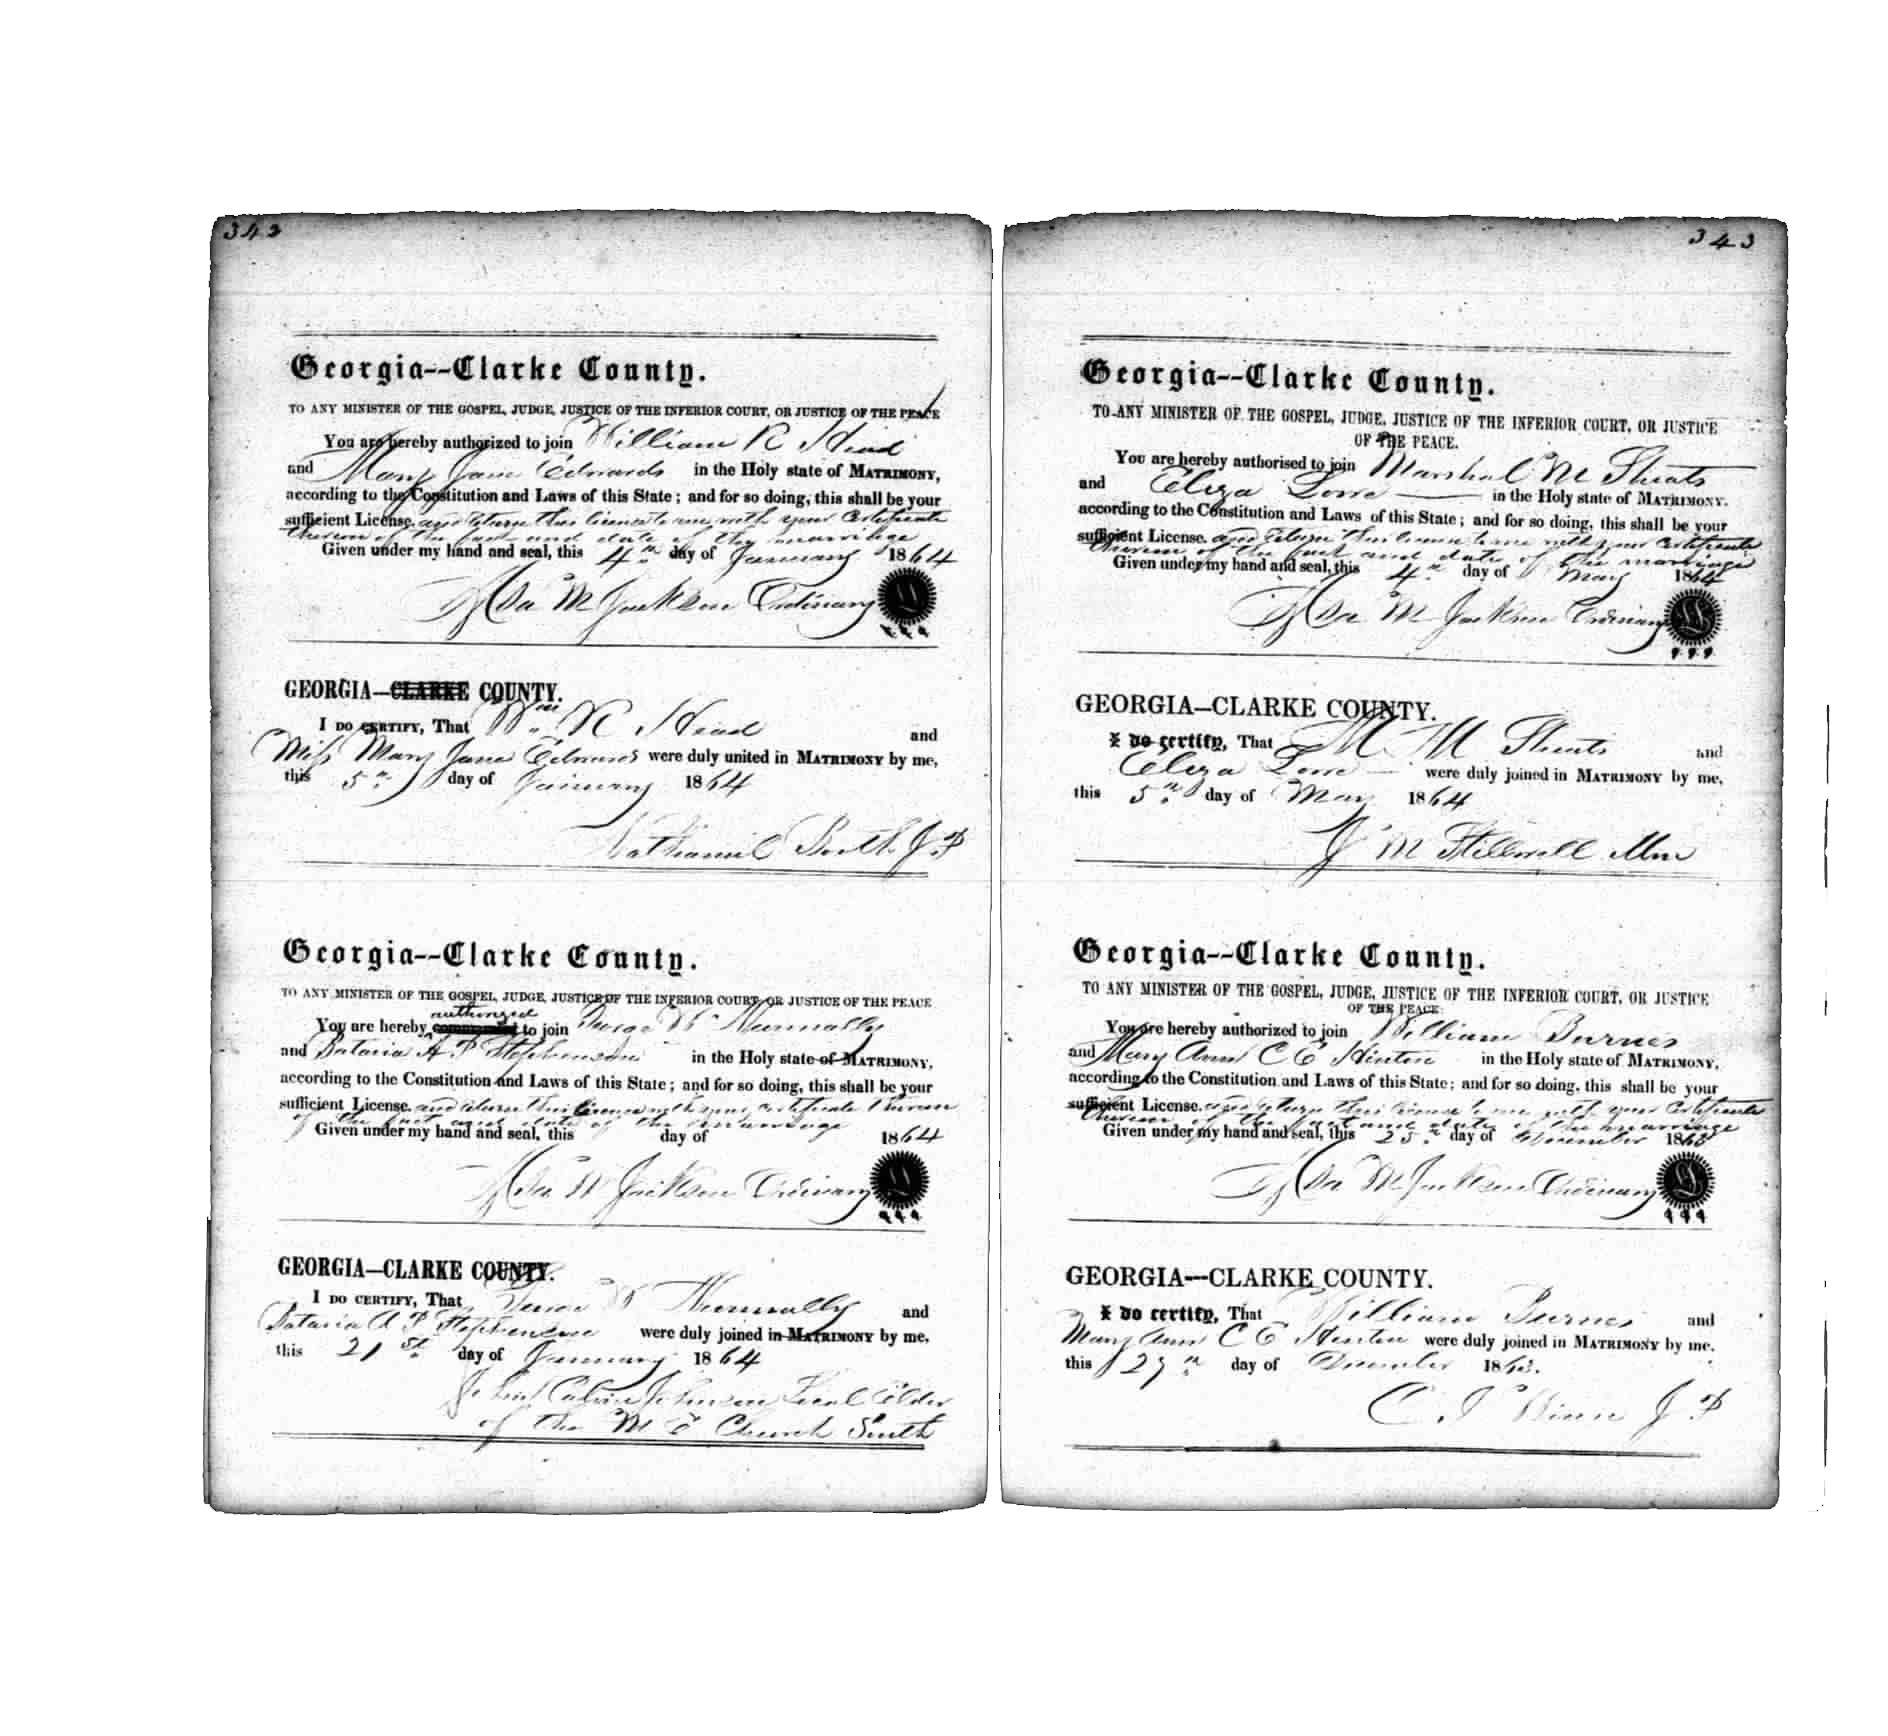 342
Georgia--Clarke County.
TO ANY MINISTER OF THE GOSPEL, JUDGE, JUSTICE OF THE INFERIOR COURT, OR JUSTICE OF THE PEACE
You are hereby authorized to join William R Head
and Mary Jane Edwards in the Holy state of MATRIMONY,
according to the Constitution and Laws of this State; and for so doing, this shall be your
sufficient License. and return this license to me with your Certificate
thereon of the fact and date of the marriage
Given under my hand and seal, this 4th day of January 1864
Asa M Jackson Ordinary
GEORGIA—CLARKE COUNTY.
I DO CERTIFY, That Wm R Head and
Miss Mary Jane Edwards were duly united in MATRIMONY by me,
this 5th day of January 1864
Nathaniel Booth J.P
Georgia--Clarke County.
TO ANY MINISTER OF THE GOSPEL, JUDGE, JUSTICE OF THE INFERIOR COURT, OR JUSTICE OF THE PEACE
authorized
You are hereby to join George W Nunnally
and Bataria A P Stephenson in the Holy state of MATRIMONY,
according to the Constitution and Laws of this State; and for so doing, this shall be your
sufficient License. and return this license with your certificate thereon
of the fact and date of the marriage
Given under my hand and seal, this day of 1864
Asa M Jackson Ordinary
GEORGIA—CLARKE COUNTY.
I DO CERTIFY, That George W Nunnally and
Bataria A P Stephenson were duly joined in MATRIMONY by me,
this 21st day of January 1864
John Calvin Johnson Local Elder
of the M E Church South
343
Georgia--Clarke County.
TO ANY MINISTER OF THE GOSPEL, JUDGE, JUSTICE OF THE INFERIOR COURT, OR JUSTICE
OF THE PEACE.
You are hereby authorised to join Marshal M Sheats
and Eliza Lowe in the Holy state of MATRIMONY.
according to the Constitution and Laws of this State; and for so doing, this shall be your
sufficient License. and return this license to me with your Certificate
thereon of the fact and date of the marriage
Given under my hand and seal, this 4th day of May 1864
Asa M Jackson Ordinary
GEORGIA—CLARKE COUNTY.
I do certify, That M M Sheats and
Eliza Lowe were duly joined in MATRIMONY by me,
this 5th day of May 1864
J M Stillwell Mm
Georgia--Clarke County.
TO ANY MINISTER OF THE GOSPEL, JUDGE, JUSTICE OF THE INFERIOR COURT, OR JUSTICE
OF THE PEACE.
You are hereby authorized to join William Burnes
and Mary Ann C E Hinton in the Holy state of MATRIMONY,
according to the Constitution and Laws of this State; and for so doing, this shall be your
sufficient License. and return this license to me with your Certificate
thereon of the fact and date of the marriage
Given under my hand and seal, this 25th day of November 1863
Asa M Jackson Ordinary
GEORGIA—CLARKE COUNTY.
I do certify, That William Burnes and
Mary Ann C E Hinton were duly joined in MATRIMONY by me.
this 27th day of December 1863.
C. J Winn J P